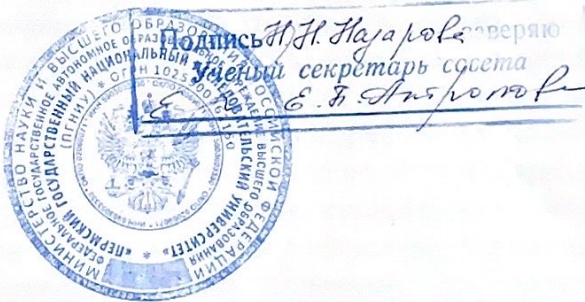 Подпись Н.Н. Назарова заверяю
Ученый секретарь совета
Е.П. Антропова
МИНИСТЕРСТВО НАУКИ И ВЫСШЕГО ОБРАЗОВАНИЯ РОССИЙСКОЙ ФЕДЕРАЦИИ
ФЕДЕРАЛЬНОЕ ГОСУДАРСТВЕННОЕ АВТОНОМНОЕ ОБРАЗОВАТЕЛЬНОЕ УЧРЕЖДЕНИЕ ВЫСШЕГО ОБРАЗОВАНИЯ
«ПЕРМСКИЙ ГОСУДАРСТВЕННЫЙ НАЦИОНАЛЬНЫЙ ИССЛЕДОВАТЕЛЬСКИЙ УНИВЕРСИТЕТ»
(ПГНИУ) * ОГРН